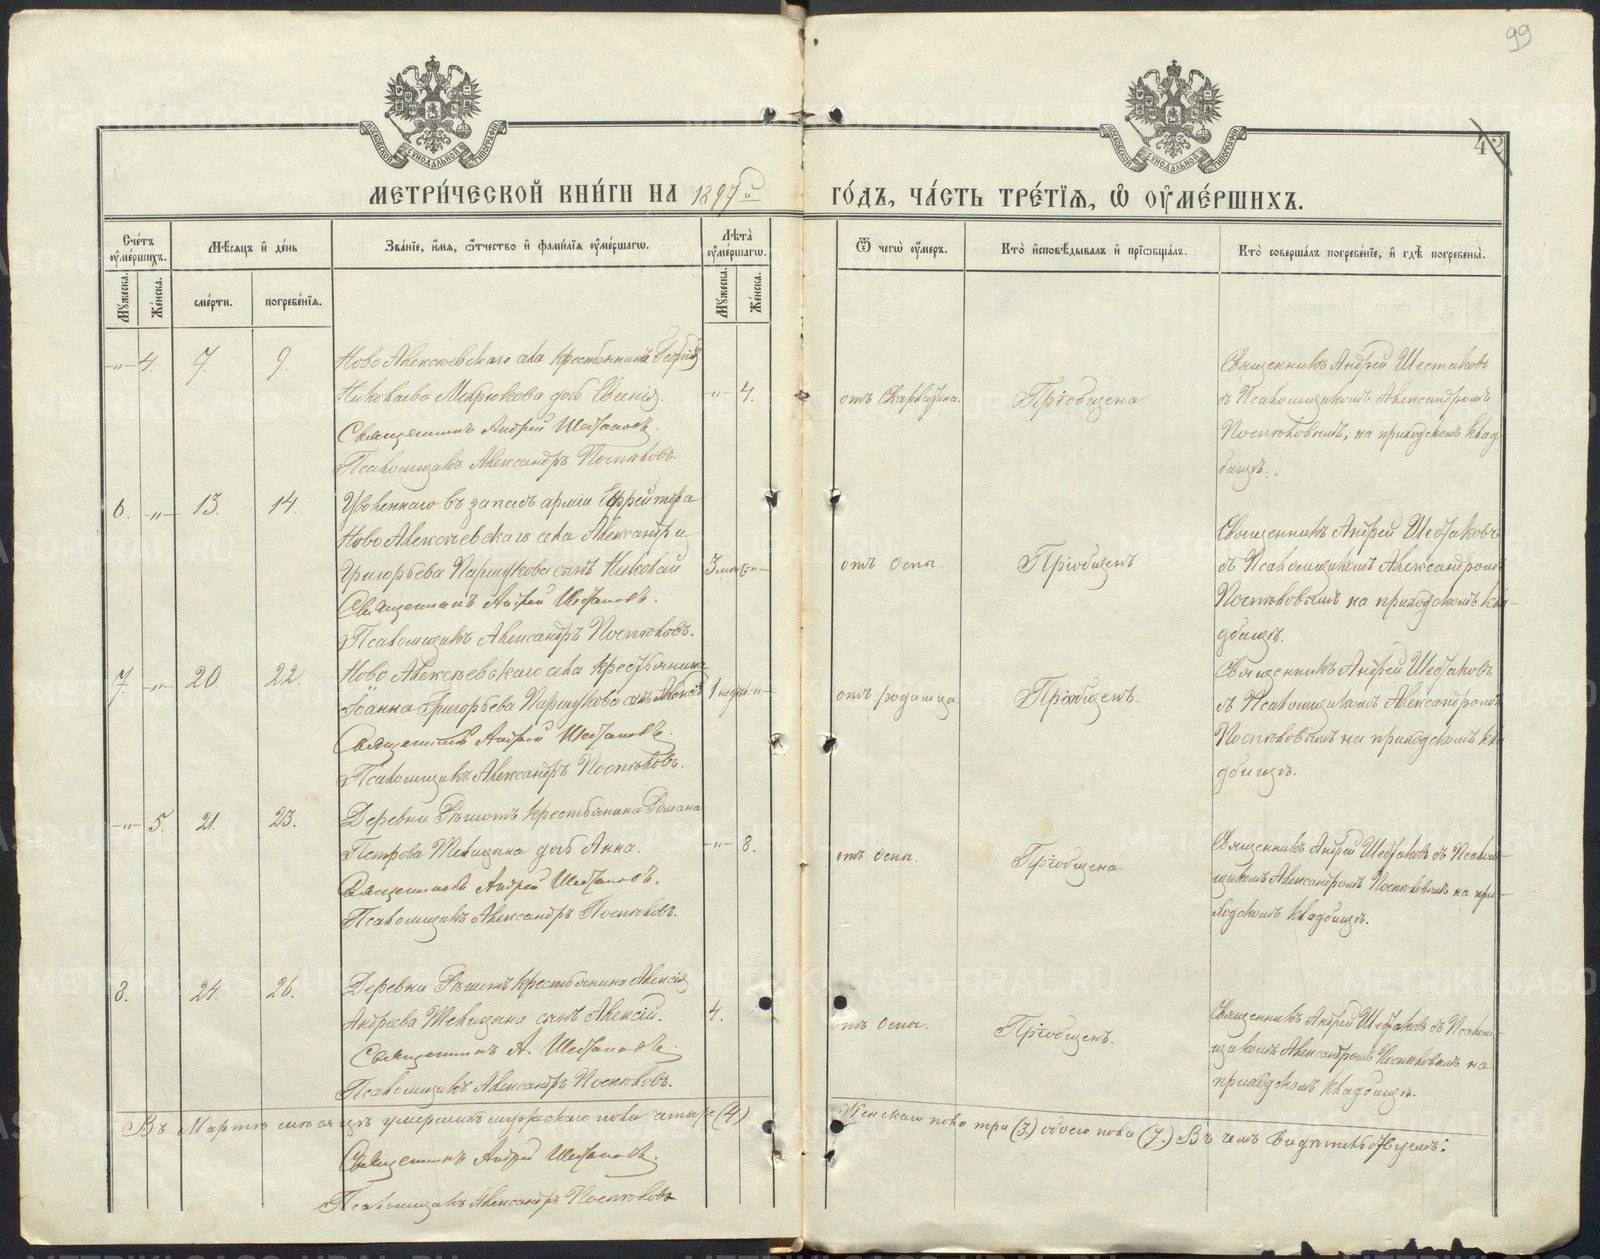 99
42
МЕТРИ́ЧЕСКОЙ КНИ́ГИ НА 1897й ГО́ДЪ, ЧА́СТЬ ТРЕ́ТЇѦ, Ѡ ОУ҆МЕ́РШИХЪ.
Сче́тъ оу҆ме́ршихъ.
Мѣ́сяцъ и҆ де́нь
Зва́нїе, и҆́мя, ѻ҆́тчество и҆ фами́лїя оу҆ме́ршагѡ.
Лѣ́та оу҆ме́ршагѡ.
Ѿ чегѡ̀ оу҆́меръ.
Кто̀ и҆сповѣ́дывалъ и҆ прїѡбща́лъ.
Кто̀ соверша́лъ погребе́нїе, и҆ гдѣ̀ погребены̀.
Мꙋ́жеска. Же́нска.
сме́рти. погребе́нїя.
Мꙋ́жеска. Же́нска.
-"- 4. 7. 9.
Ново Алексѣевскаго села крестьянина Георгія
Николаева Мокрюкова дочь
Священникъ Андрей Шестаковъ.
Псаломщикъ Александръ Постниковъ.
-"- 4.
отъ Скарлатина.
Пріобщена
Священникъ Андрей Шестаковъ
съ Псаломщикомъ Александромъ
Постниковымъ, на приходскомъ клад
бищѣ.
6. -"- 13. 14.
Уволеннаго въ запасъ арміи Ефрейтора
Ново Алексѣевскаго села Александра
Григорьева Паршукова сынъ Николай
Священникъ Андрей Шестаковъ.
Псаломщикъ Александръ Постниковъ.
3 мѣс. -"-
отъ оспы.
Пріобщенъ
Священникъ Андрей Шестаковъ
съ Псаломщикомъ Александромъ
Постниковымъ на приходскомъ кла-
дбищѣ.
7. -"- 20. 22.
Ново Алексѣевскаго села крестьянина
Іоанна Григорьева Паршукова сынъ Алексѣй
Священникъ Андрей Шестаковъ.
Псаломщикъ Александръ Постниковъ.
1 недѣл. -"-
отъ родимца.
Пріобщенъ.
Священникъ Андрей Шестаковъ
съ Псаломщикомъ Александромъ
Постниковымъ на приходскомъ кла
дбищѣ.
-"- 5. 21. 23.
Деревни Рѣшотъ крестьянина Романа
Петрова Телицына дочь Анна.
Священникъ Андрей Шестаковъ.
Псаломщикъ Александръ Постниковъ.
-"- 8.
отъ оспы.
Пріобщена.
Священникъ Андрей Шестаковъ съ Псалом-
щикомъ Александромъ Постниковымъ на при-
ходскомъ кладбищѣ.
8. 24. 26.
Деревни Рѣшотъ крестьянина Алексія
Андреева Телицына сынъ Алексій.
Священникъ А. Шестаковъ.
Псаломщикъ Александръ Постниковъ.
4.
отъ оспы.
Пріобщенъ.
Священникъ Андрей Шестаковъ съ Псалом-
щикомъ Александромъ Постниковымъ на
приходскомъ кладбищѣ.
Въ Мартѣ мѣсяцѣ умершихъ мужскаго пола четыре (4)
Женскаго пола три (3.) обоего пола (7.) Въ чемъ свидѣтельствуемъ:
Священникъ Андрей Шестаковъ.
Псаломщикъ Александръ Постниковъ